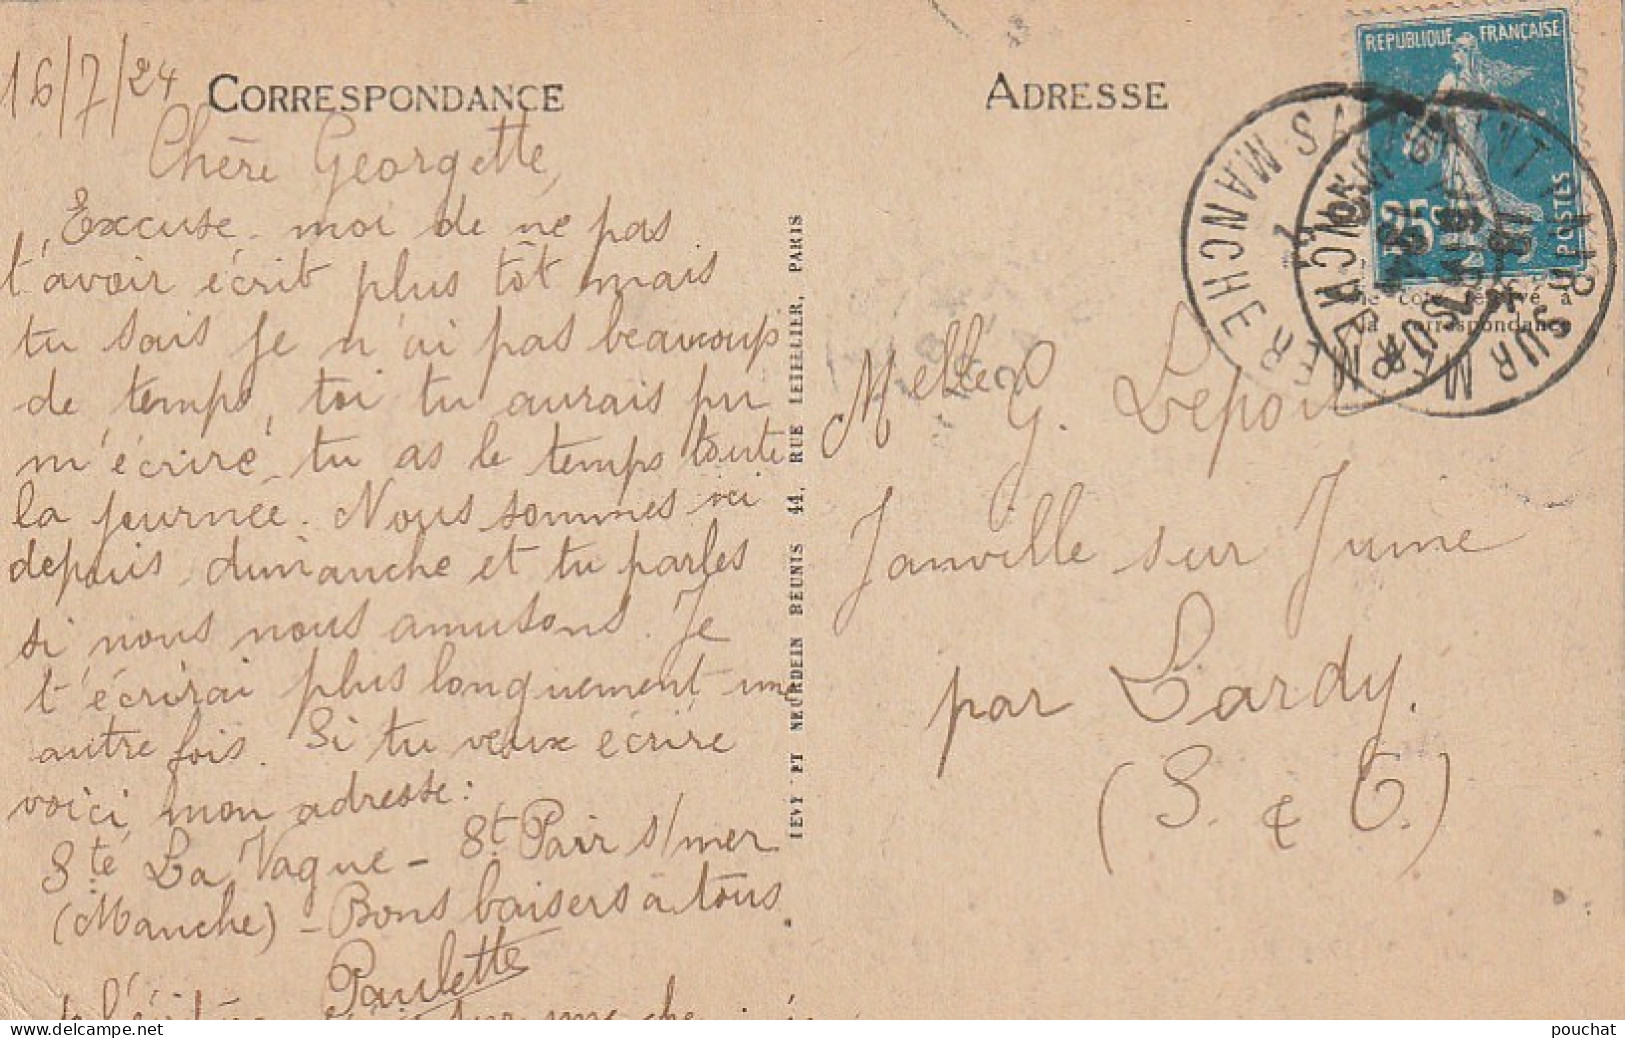 16/7/24
CORRESPONDANCE
Chère Georgette,
Excuse-moi de ne pas
t'avoir écrit plus tôt mais
tu sais je n'ai pas beaucoup
de temps, toi tu aurais pu
m'écrire, tu as le temps toute
la journée. Nous sommes ici
depuis dimanche et tu parles
si nous nous amusons. Je
t'écrirai plus longuement une
autre fois. Si tu veux écrire
voici mon adresse:
La Vague - St Pair s/mer
(Manche) - Bons baisers à tous.
Paulette
LEVY ET NEURDEIN REUNIS 44, RUE LETELLIER, PARIS
ADRESSE
REPUBLIQUE FRANÇAISE
25c
POSTES
SAINT PAIR SUR MER
MANCHE
la correspondance
Melle G.
Janville sur Juine
par Lardy.
(S. & O.)
pouchat